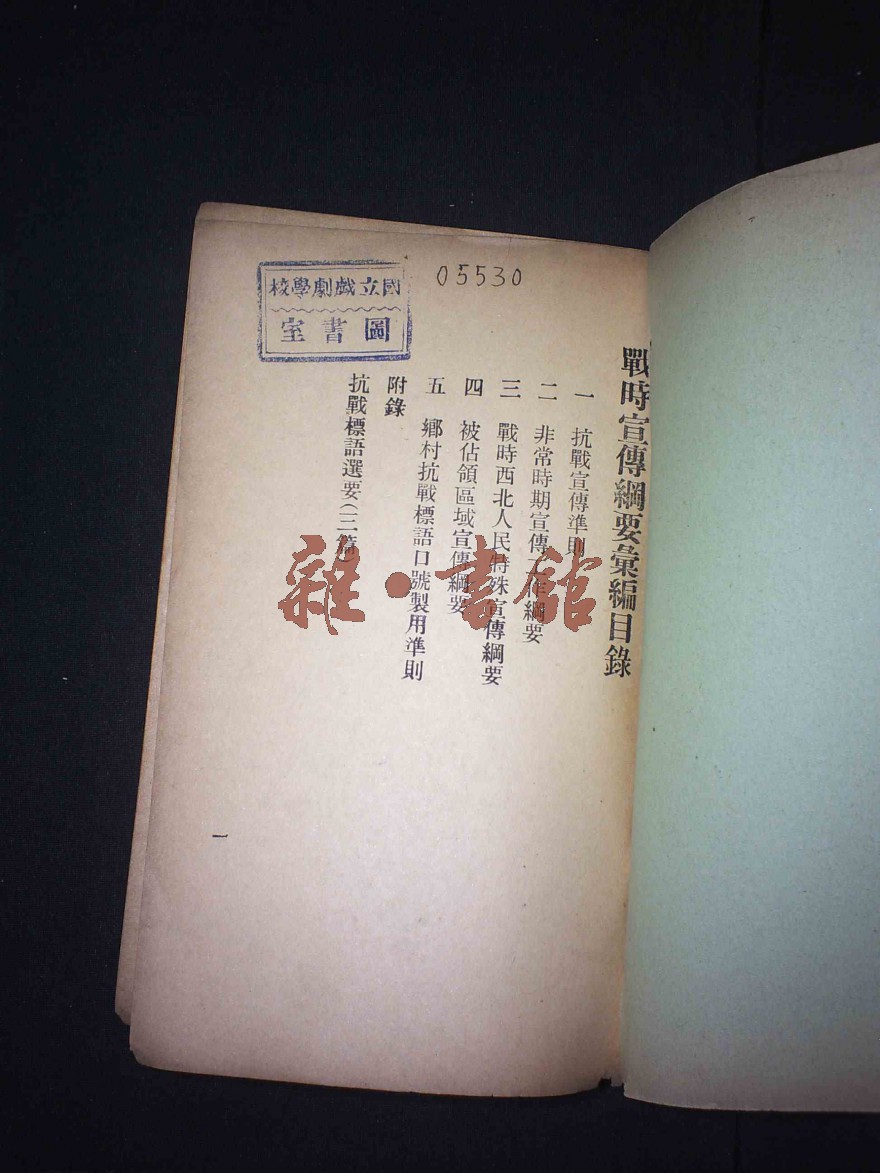 戰時宣傳綱要彙編目錄
一 抗戰宣傳準則
二 非常時期宣傳工作綱要
三 戰時西北人民特殊宣傳綱要
四 被佔領區域宣傳綱要
五 鄉村抗戰標語口號製用準則
附錄
抗戰標語選要(三篇)
一
國立戲劇學校
圖書室
05530
雜·書館